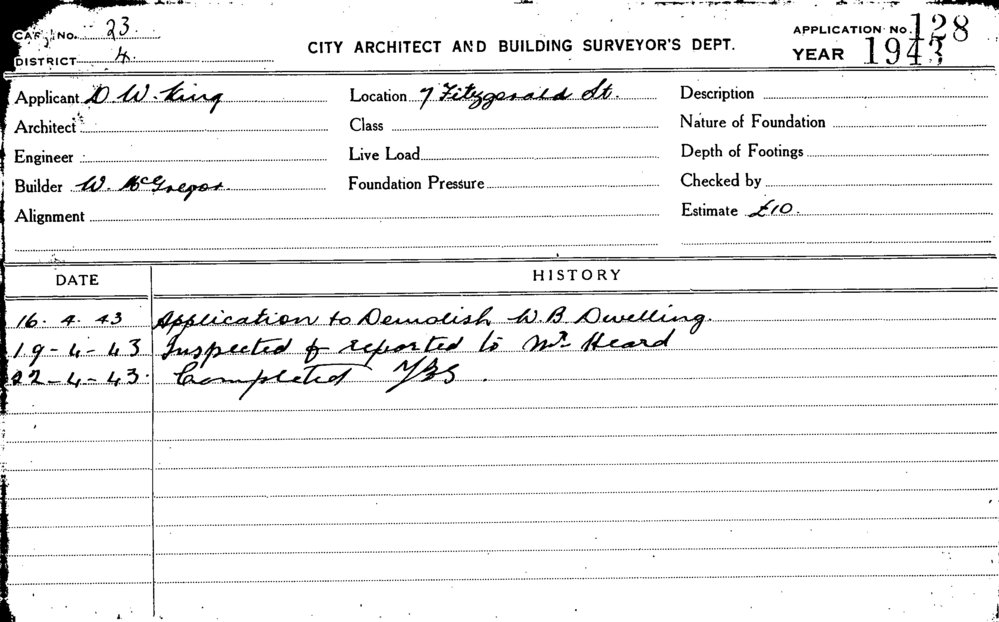 CARD No. 23.
DISTRICT 4.
CITY ARCHITECT AND BUILDING SURVEYOR'S DEPT.
APPLICATION No. 128
YEAR 1943
Applicant D W King
Location 7 Fitzgerald St.
Description
Architect
Class
Nature of Foundation
Engineer
Live Load
Depth of Footings
Builder W. McGregor.
Foundation Pressure
Checked by
Alignment
Estimate £10.
DATE HISTORY
16. 4. 43 Application to Demolish W.B Dwelling.
19-4-43 Inspected & reported to Mr Heard
22-4-43. Completed